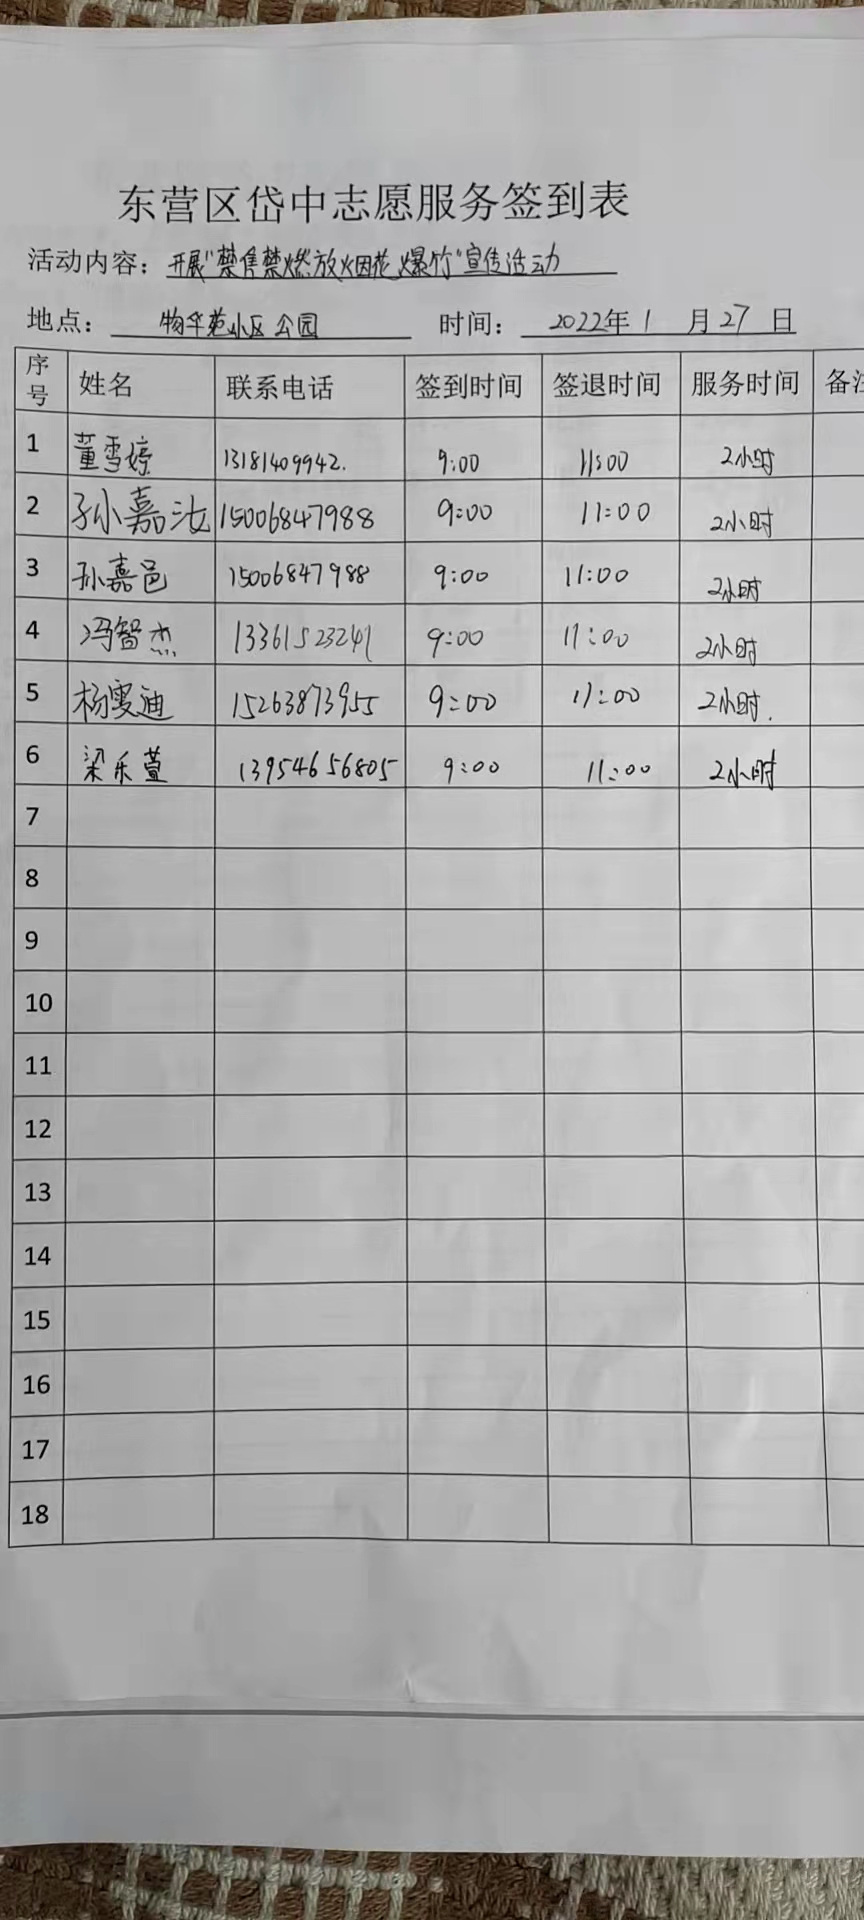 东营区岱中志愿服务签到表
活动内容：开展“禁售禁燃放烟花爆竹”宣传活动
地点：物华苑小区公园 时间：2022年1月27日
序号 姓名 联系电话 签到时间 签退时间 服务时间 备注
1 董雪婷 13181409942. 9:00 11:00 2小时
2 孙嘉汝 15006847988 9:00 11:00 2小时
3 孙嘉邑 15006847988 9:00 11:00 2小时
4 冯智杰 13361523241 9:00 11:00 2小时
5 杨雯迪 15263873955 9:00 11:00 2小时.
6 梁乐萱 13954656805 9:00 11:00 2小时
7
8
9
10
11
12
13
14
15
16
17
18